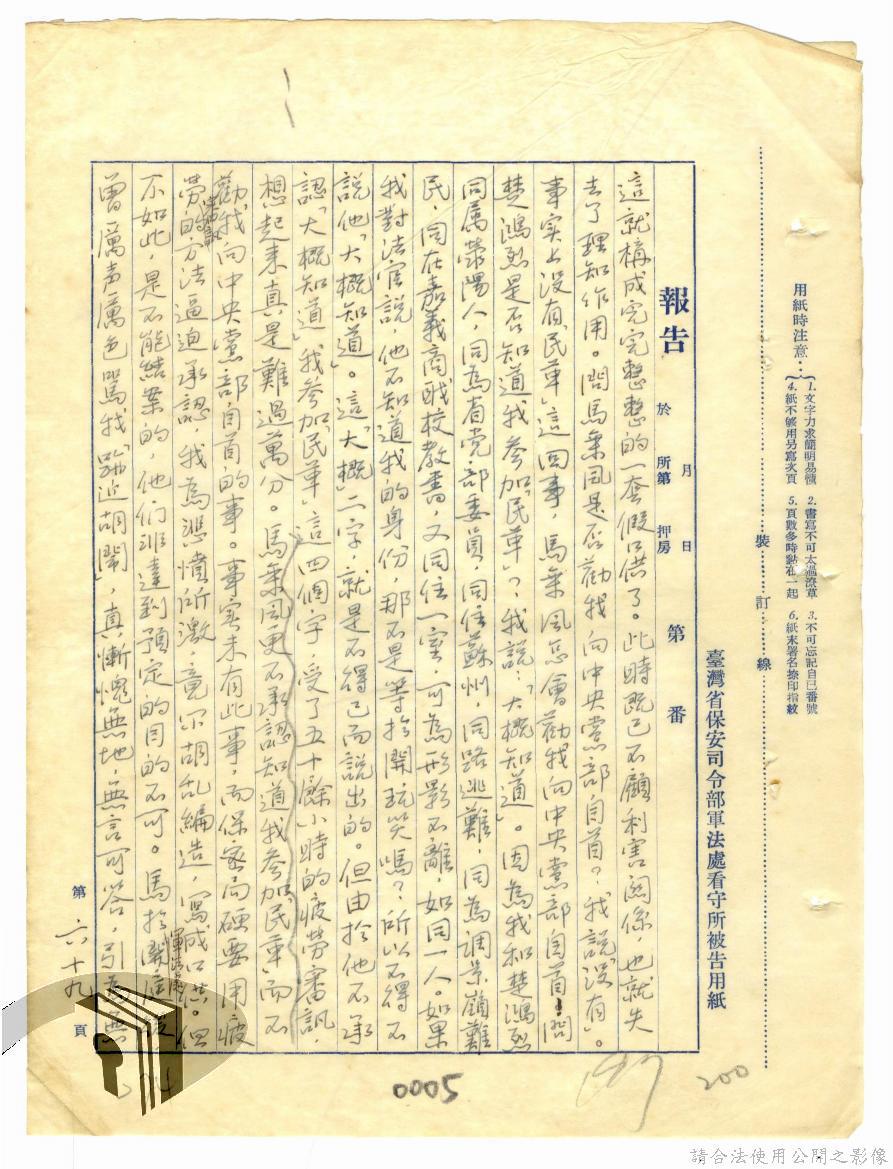 用紙時注意：
1. 文字力求簡明易懂
2. 書寫不可太過潦草
3. 不可忘記自己番號
4. 紙不够用另寫次頁
5. 頁數多時黏在一起
6. 紙末署名捺印指紋
裝 訂 線
臺灣省保安司令部軍法處看守所被告用紙
報告
於 月 日
所第 押房
第 番
這就構成完完整整的一套假口供了。此時既已不顧利害関係，也就失
去了理知作用。問馬乘風是否勸我向中央黨部自首？我說「沒有」。
事实上沒有「民革」這回事，馬乘风怎會勸我向中央黨部自首！問
楚鴻烈是否知道我参加「民革」？我說：「大概知道」。因為我和楚鴻烈
同属滎陽人，同為省党部委員，同住蘇州，同路逃難，同為調景嶺難
民，同在嘉義商职校教書，又同住一室，可為形影不離，如同一人。如果
我對法官說，他不知道我的身份，那不是等於開玩笑嗎？所以不得不
說他「大概知道」。這「大概」二字，就是不得已而說出的。但由於他不承
認「大概知道」我参加「民革」這四個字，受了五十餘小時的疲勞審訊，
想起来真是難過萬分。馬乘風更不承認知道我参加「民革」而不
勸我向中央黨部自首的事。事实未有此事，而保密局硬要用疲
勞審訊的方法逼迫承認，我為悲憤所激，竟尔胡乱編造，寫成口供。但
不如此，是不能結案的，他们非達到預定的目的不可。馬於軍法局開庭後
曾厲声厲色罵我「跡近胡鬧」，真慚愧無地，無言可答，引為無
第 六十九 頁
0005
200
請合法使用公開之影像